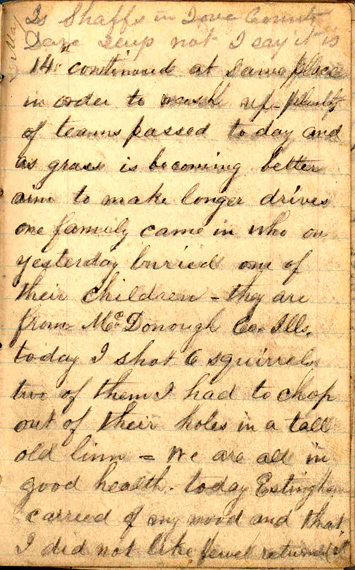 Is Shaffs in Love County
Dave Seup not I say it is
14th continued at same place
in order to wash up - plenty
of teams passed to day and
as grass is becoming better
aim to make longer drives
one family came in who on
yesterday buried one of
their children - they are
from McDonough Co. Ill.
today I shot 6 squirrels
two of them I had to chop
out of their holes in a tall
old linn = We are all in
good health. today
carried of my wood and that
I did not like fewel returned it